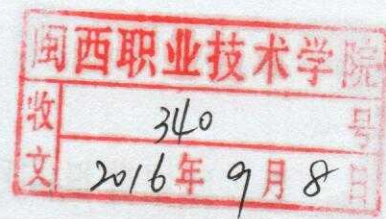 闽西职业技术学院
收文 340 号
2016年 9月 8日